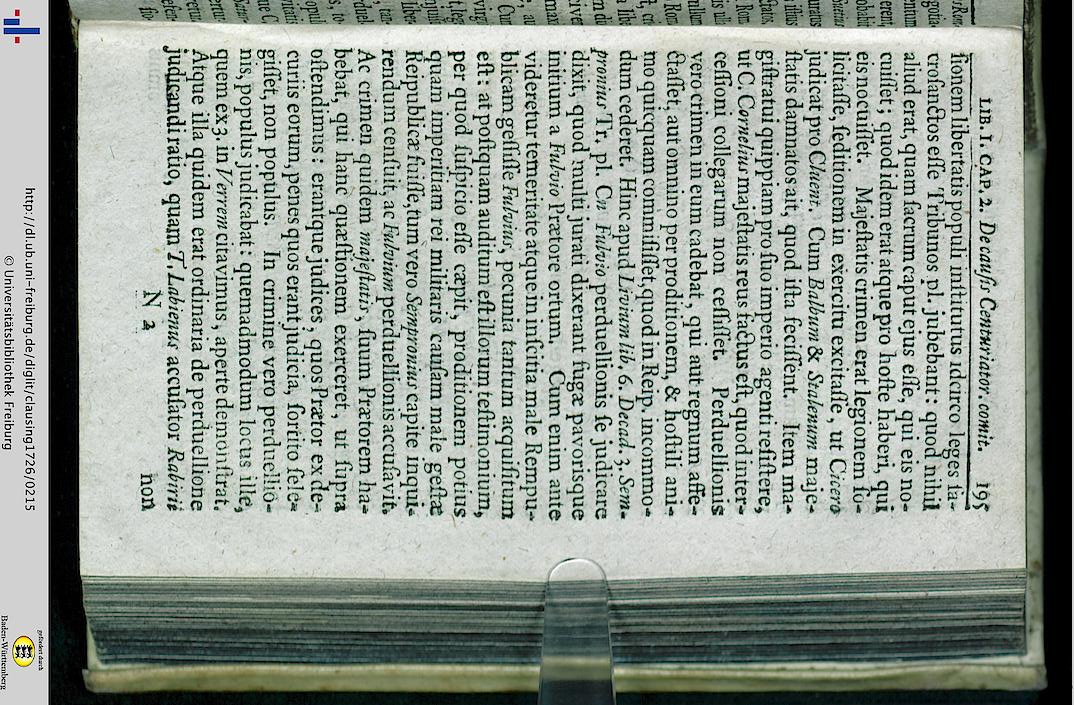 LIB. I. CAP. 2. De causis Centuriator. comit. 195
ſionem libertatis populi inſtitutus idcirco leges ſa-
croſanctos eſſe Tribunos pl. jubebant: quod nihil
aliud erat, quam ſacrum caput ejus eſſe, qui eis no-
cuiſſet; quod idem erat atque pro hoſte haberi, qui
eis nocuiſſet. Majeſtatis crimen erat legionem ſo-
licitaſſe, ſeditionem in exercitu excitaſſe, ut Cicero
judicat pro Cluent. Cum Balbum & Stalenum maje-
ſtatis damnatos ait, quod iſta feciſſent. Item ma-
giſtratui quippiam pro ſuo imperio agenti reſiſtere,
ut C. Cornelius majeſtatis reus factus eſt, quod inter-
ceſſioni collegarum non ceſſiſſet. Perduellionis
vero crimen in eum cadebat, qui aut regnum affe-
ctaſſet, aut omnino per proditionem, & hoſtili ani-
mo quicquam commiſiſſet, quod in Reip. incommo-
dum cederet. Hinc apud Livium lib. 6. Decad. 3. Sem-
pronius Tr. pl. Cn Fulvio perduellionis ſe judicare
dixit, quod multi jurati dixerant fugæ pavorisque
initium a Fulvio Prætore ortum. Cum enim ante
videretur temeritate atque inſcitia male Rempu-
blicam geſſiſſe Fulvius, pecunia tantum acquiſitum
eſt: at poſtquam auditum eſt illorum teſtimonium,
per quod ſuſpicio eſſe cæpit, proditionem potius
quam imperitiam rei militaris cauſam male geſtæ
Reipublicæ fuiſſe, tum vero Sempronius capite inqui-
rendum cenſuit, ac Fulvium perduellionis accuſavit.
Ac crimen quidem majeſtatis, ſuum Prætorem ha-
bebat, qui hanc quæſtionem exerceret, ut ſupra
oſtendimus: erantque judices, quos Prætor ex de-
curiis eorum, penes quos erant judicia, ſortito ſele-
giſſet, non populus. In crimine vero perduellio-
nis, populus judicabat: quemadmodum locus ille,
quem ex 3. in Verrem citavimus, aperte demonſtrat.
Atque illa quidem erat ordinaria de perduellione
judicandi ratio, quam T. Labienus accuſator Rabirii
N 2 non
http://dl.ub.uni-freiburg.de/diglit/clausing1726/0215
© Universitätsbibliothek Freiburg
gefördert durch
Baden-Württemberg